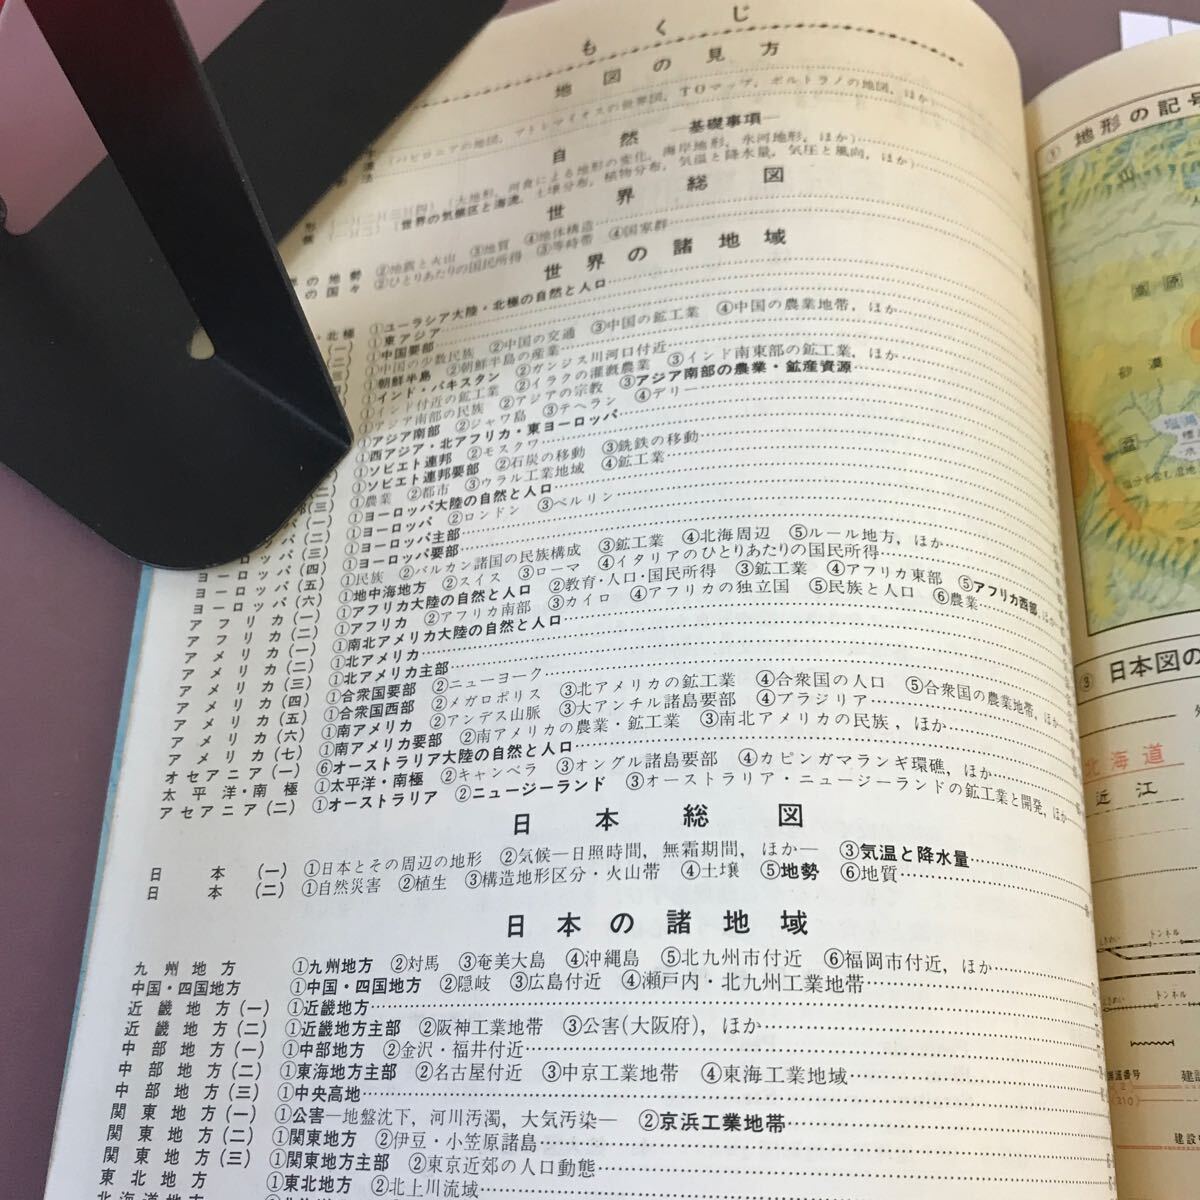 もくじ
地図の見方
(バビロニアの地図, プトレマイオスの世界図, TOマップ, ポルトラノの地図, ほか)
自然 ―基礎事項―
(大地形, 河食による地形の変化, 海岸地形, 氷河地形, ほか)
(世界の気候区と海流, 土壌分布, 植物分布, 気温と降水量, 気圧と風向, ほか)
世界総図
の地勢 ②地震と火山 ③地質 ④地体構造
の国々 ②ひとりあたりの国民所得 ③等時帯 ④国家群
世界の諸地域
北極 ①ユーラシア大陸・北極の自然と人口
①東アジア
①中国要部 ②中国の交通 ③中国の鉱工業 ④中国の農業地帯, ほか
①中国の少数民族 ②朝鮮半島の産業
①朝鮮半島
①インド・パキスタン ②ガンジス川河口付近 ③インド南東部の鉱工業, ほか
①インド付近の鉱工業 ②イラクの灌漑農業 ③アジア南部の農業・鉱産資源
①アジア南部の民族 ②アジアの宗教
①アジア南部 ②ジャワ島 ③テヘラン ④デリー
①西アジア・北アフリカ・東ヨーロッパ
①ソビエト連邦 ②モスクワ
①ソビエト連邦要部 ②石炭の移動 ③銑鉄の移動
①農業 ②都市 ③ウラル工業地域 ④鉱工業
①ヨーロッパ大陸の自然と人口
①ヨーロッパ ②ロンドン ③ベルリン
①ヨーロッパ主部
①ヨーロッパ要部
ヨーロッパ(五) ①民族 ②バルカン諸国の民族構成 ③鉱工業 ④北海周辺 ⑤ルール地方, ほか
ヨーロッパ(六) ①地中海地方 ②スイス ③ローマ ④イタリアのひとりあたりの国民所得
アフリカ(一) ①アフリカ大陸の自然と人口 ②教育・人口・国民所得 ③鉱工業 ④アフリカ東部 ⑤アフリカ西部, ほか
アフリカ(二) ①アフリカ ②アフリカ南部 ③カイロ ④アフリカの独立国 ⑤民族と人口 ⑥農業
アメリカ(一) ①南北アメリカ大陸の自然と人口
アメリカ(二) ①北アメリカ
アメリカ(三) ①北アメリカ主部
アメリカ(四) ①合衆国要部 ②ニューヨーク
アメリカ(五) ①合衆国西部 ②メガロポリス ③北アメリカの鉱工業 ④合衆国の人口 ⑤合衆国の農業地帯, ほか
アメリカ(六) ①南アメリカ ②アンデス山脈 ③大アンチル諸島要部 ④ブラジリア
アメリカ(七) ①南アメリカ要部 ②南アメリカの農業・鉱工業 ③南北アメリカの民族, ほか
オセアニア(一) ⑥オーストラリア大陸の自然と人口
太平洋・南極 ①太平洋・南極 ②キャンベラ ③オングル諸島要部 ④カピンガマランギ環礁, ほか
アセアニア(二) ①オーストラリア ②ニュージーランド ③オーストラリア・ニュージーランドの鉱工業と開発, ほか
日本総図
日本(一) ①日本とその周辺の地形 ②気候―日照時間, 無霜期間, ほか― ③気温と降水量
日本(二) ①自然災害 ②植生 ③構造地形区分・火山帯 ④土壌 ⑤地勢 ⑥地質
日本の諸地域
九州地方 ①九州地方 ②対馬 ③奄美大島 ④沖縄島 ⑤北九州市付近 ⑥福岡市付近, ほか
中国・四国地方 ①中国・四国地方 ②隠岐 ③広島付近 ④瀬戸内・北九州工業地帯
近畿地方(一) ①近畿地方
近畿地方(二) ①近畿地方主部 ②阪神工業地帯 ③公害(大阪府), ほか
中部地方(一) ①中部地方 ②金沢・福井付近
中部地方(二) ①東海地方主部 ②名古屋付近 ③中京工業地帯 ④東海工業地域
中部地方(三) ①中央高地
関東地方(一) ①公害―地盤沈下, 河川汚濁, 大気汚染― ②京浜工業地帯
関東地方(二) ①関東地方 ②伊豆・小笠原諸島
関東地方(三) ①関東地方主部 ②東京近郊の人口動態
東北地方 ①東北地方 ②北上川流域
北海道地方
① 地形の記号
山
高原
砂漠
盆
塩湖
③ 日本図の
北海道
近江
トンネル
トンネル
国道番号
2
(210)
建設
建設